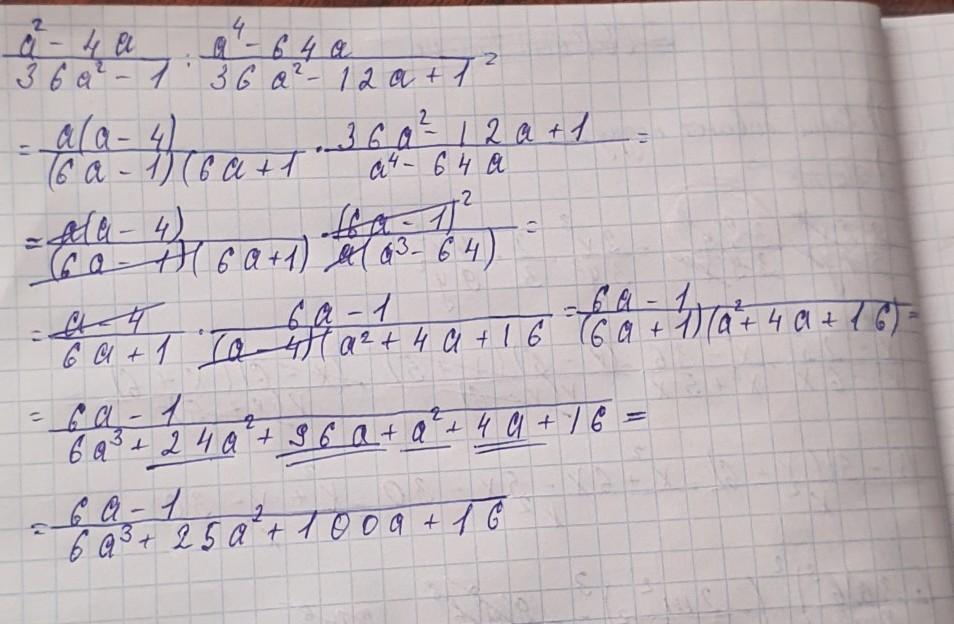 (a² - 4a)/(36a² - 1) : (a⁴ - 64a)/(36a² - 12a + 1) =
= a(a - 4)/((6a - 1)(6a + 1) · (36a² - 12a + 1)/(a⁴ - 64a) =
= a(a - 4)/((6a - 1)(6a + 1)) · (6a - 1)²/(a(a³ - 64)) =
= (a - 4)/(6a + 1) · (6a - 1)/((a - 4)(a² + 4a + 16) = (6a - 1)/((6a + 1)(a² + 4a + 16)) =
= (6a - 1)/(6a³ + 24a² + 96a + a² + 4a + 16) =
= (6a - 1)/(6a³ + 25a² + 100a + 16)